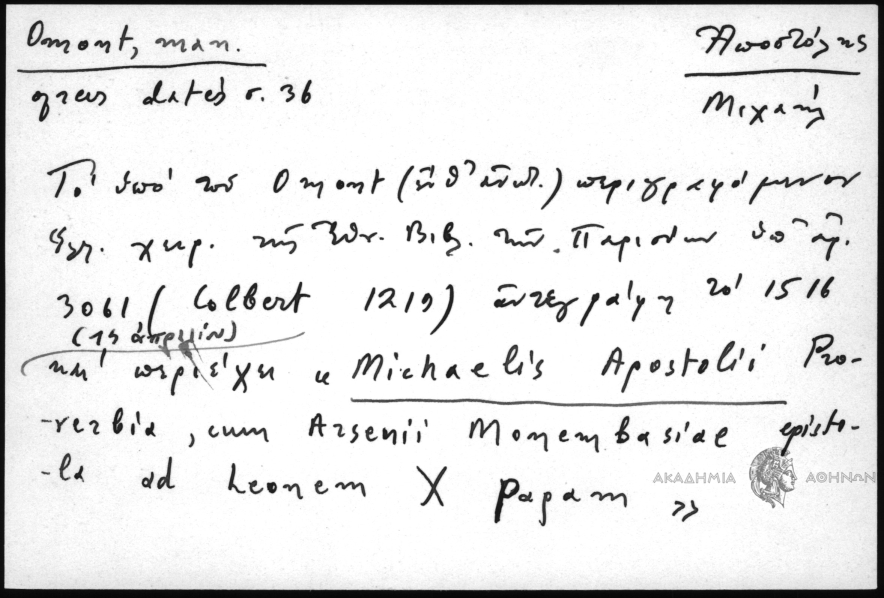 Omont, man.
grecs datés σ. 36
Ἀποστόλης
Μιχαήλ
Τό ὑπό τοῦ Omont (ἔνθ' ἀνωτ.) περιγραφόμενον
ἑλλ. χειρ. τῆς Ἐθν. Βιβλ. τῶν Παρισίων ὑπ' ἀρ.
3061 (Colbert 1219) ἀντεγράφη τό 1516
(19 ἀπριλίου)
καί περιέχει « Michaelis Apostolii Pro-
-verbia, cum Arsenii Monembasiae episto-
-la ad Leonem X Papam »
ΑΚΑΔΗΜΙΑ ΑΘΗΝΩΝ